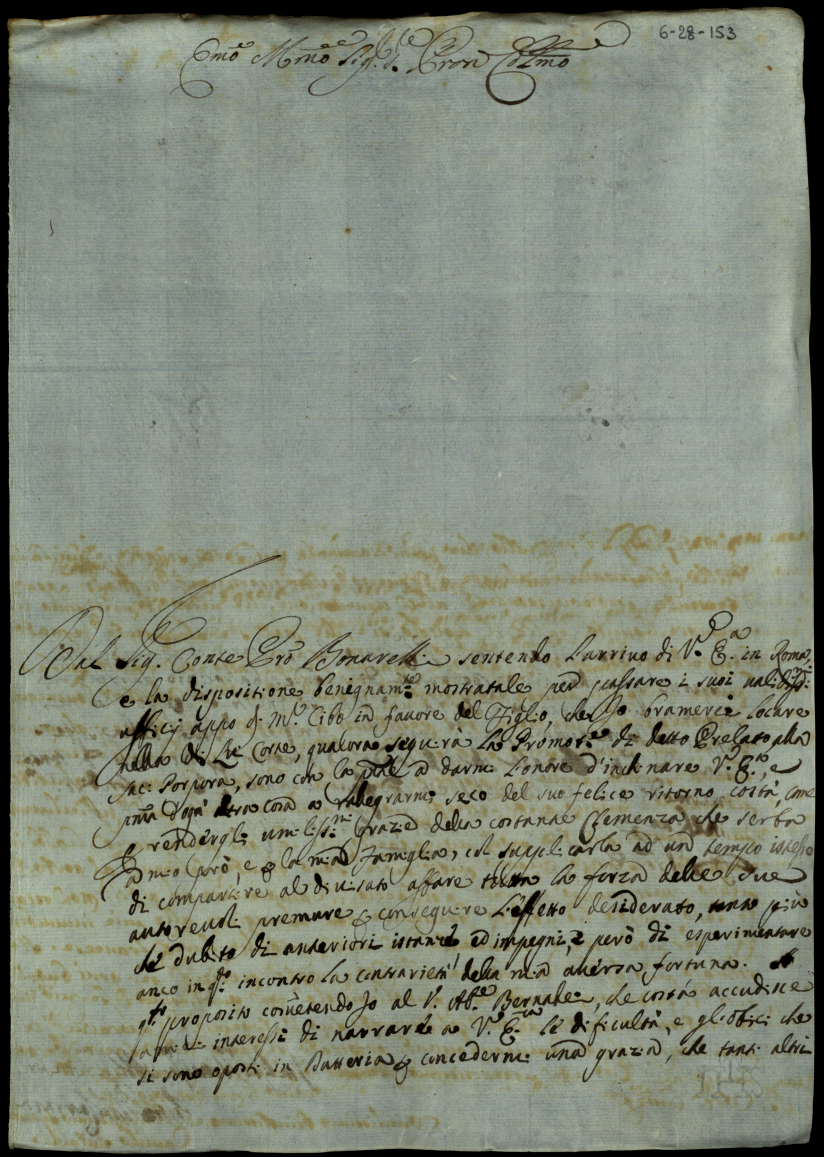 6-28-153
Emo Rmo Sig.r Sig.r Pron Colmo
Dal Sig. Conte Pro Bonarelli sentendo l'arriuo di V.a E.a in Roma,
e la dispositione benignam.te mostratale per passare i suoi ualidiss.mi
officij appo di M.r Cibo in fauore del Figlio, che Io bramerei locare
nella di Lui Corte, qualora seguirà la Promot.ne di detto Prelato alla
sac: Porpora, sono con la pnte a darmi l'onore d'inchinare V.a E.a, e
pma d'ogn' altra cosa a rallegrarmi seco del suo felice ritorno costà, come
a rendergli umiliss.mi grazie della costante Clemenza che serba
a mio prò, e la mia Famiglia, col supplicarla ad un tempo istesso
di compartire al diuisato affare tutta la forza delle sue
autoreuoli premure conseguire l'effetto desiderato, tanto più
che dubito di anteriori istanze, ed impegni, e però di esperimentare
anco in q.to incontro la contrarietà della mia auuersa fortuna. A
q.to proposito commettendo Io al S.r Ab.e Bernabei, che costà accudisce
a miei interessi di narrare a V.a E.za le dificultà, e gl'obici che
si sono oposti in Dateria concedermi una grazia, che tanti altri